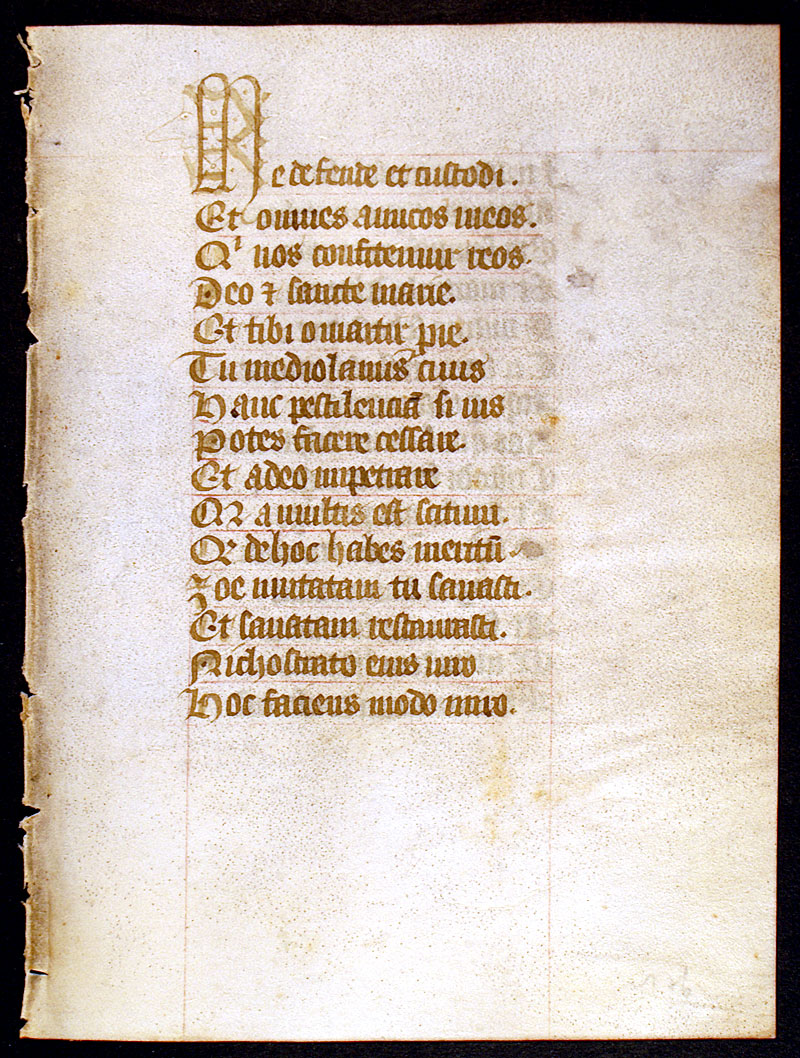 Me defende et custodi.
Et omnes amicos meos.
Qr nos confitemur reos.
Deo ⁊ sancte marie.
Et tibi o martir pie.
Tu mediolanus ciuis
Hanc pestilenciā si uis
Potes facere cessare.
Et adeo impetrare
Qr a multis est scitum.
Qr dehoc habes meritū
Zoe mutatam tu sanasti.
Et sanatam restaurasti.
Nichostrato eius uiro
Hoc faciens modo miro.